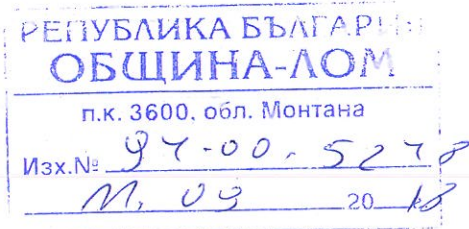 РЕПУБЛИКА БЪЛГАРИЯ
ОБЩИНА-ЛОМ
п.к. 3600, обл. Монтана
Изх.№ 94-00-5278
11. 09 2018